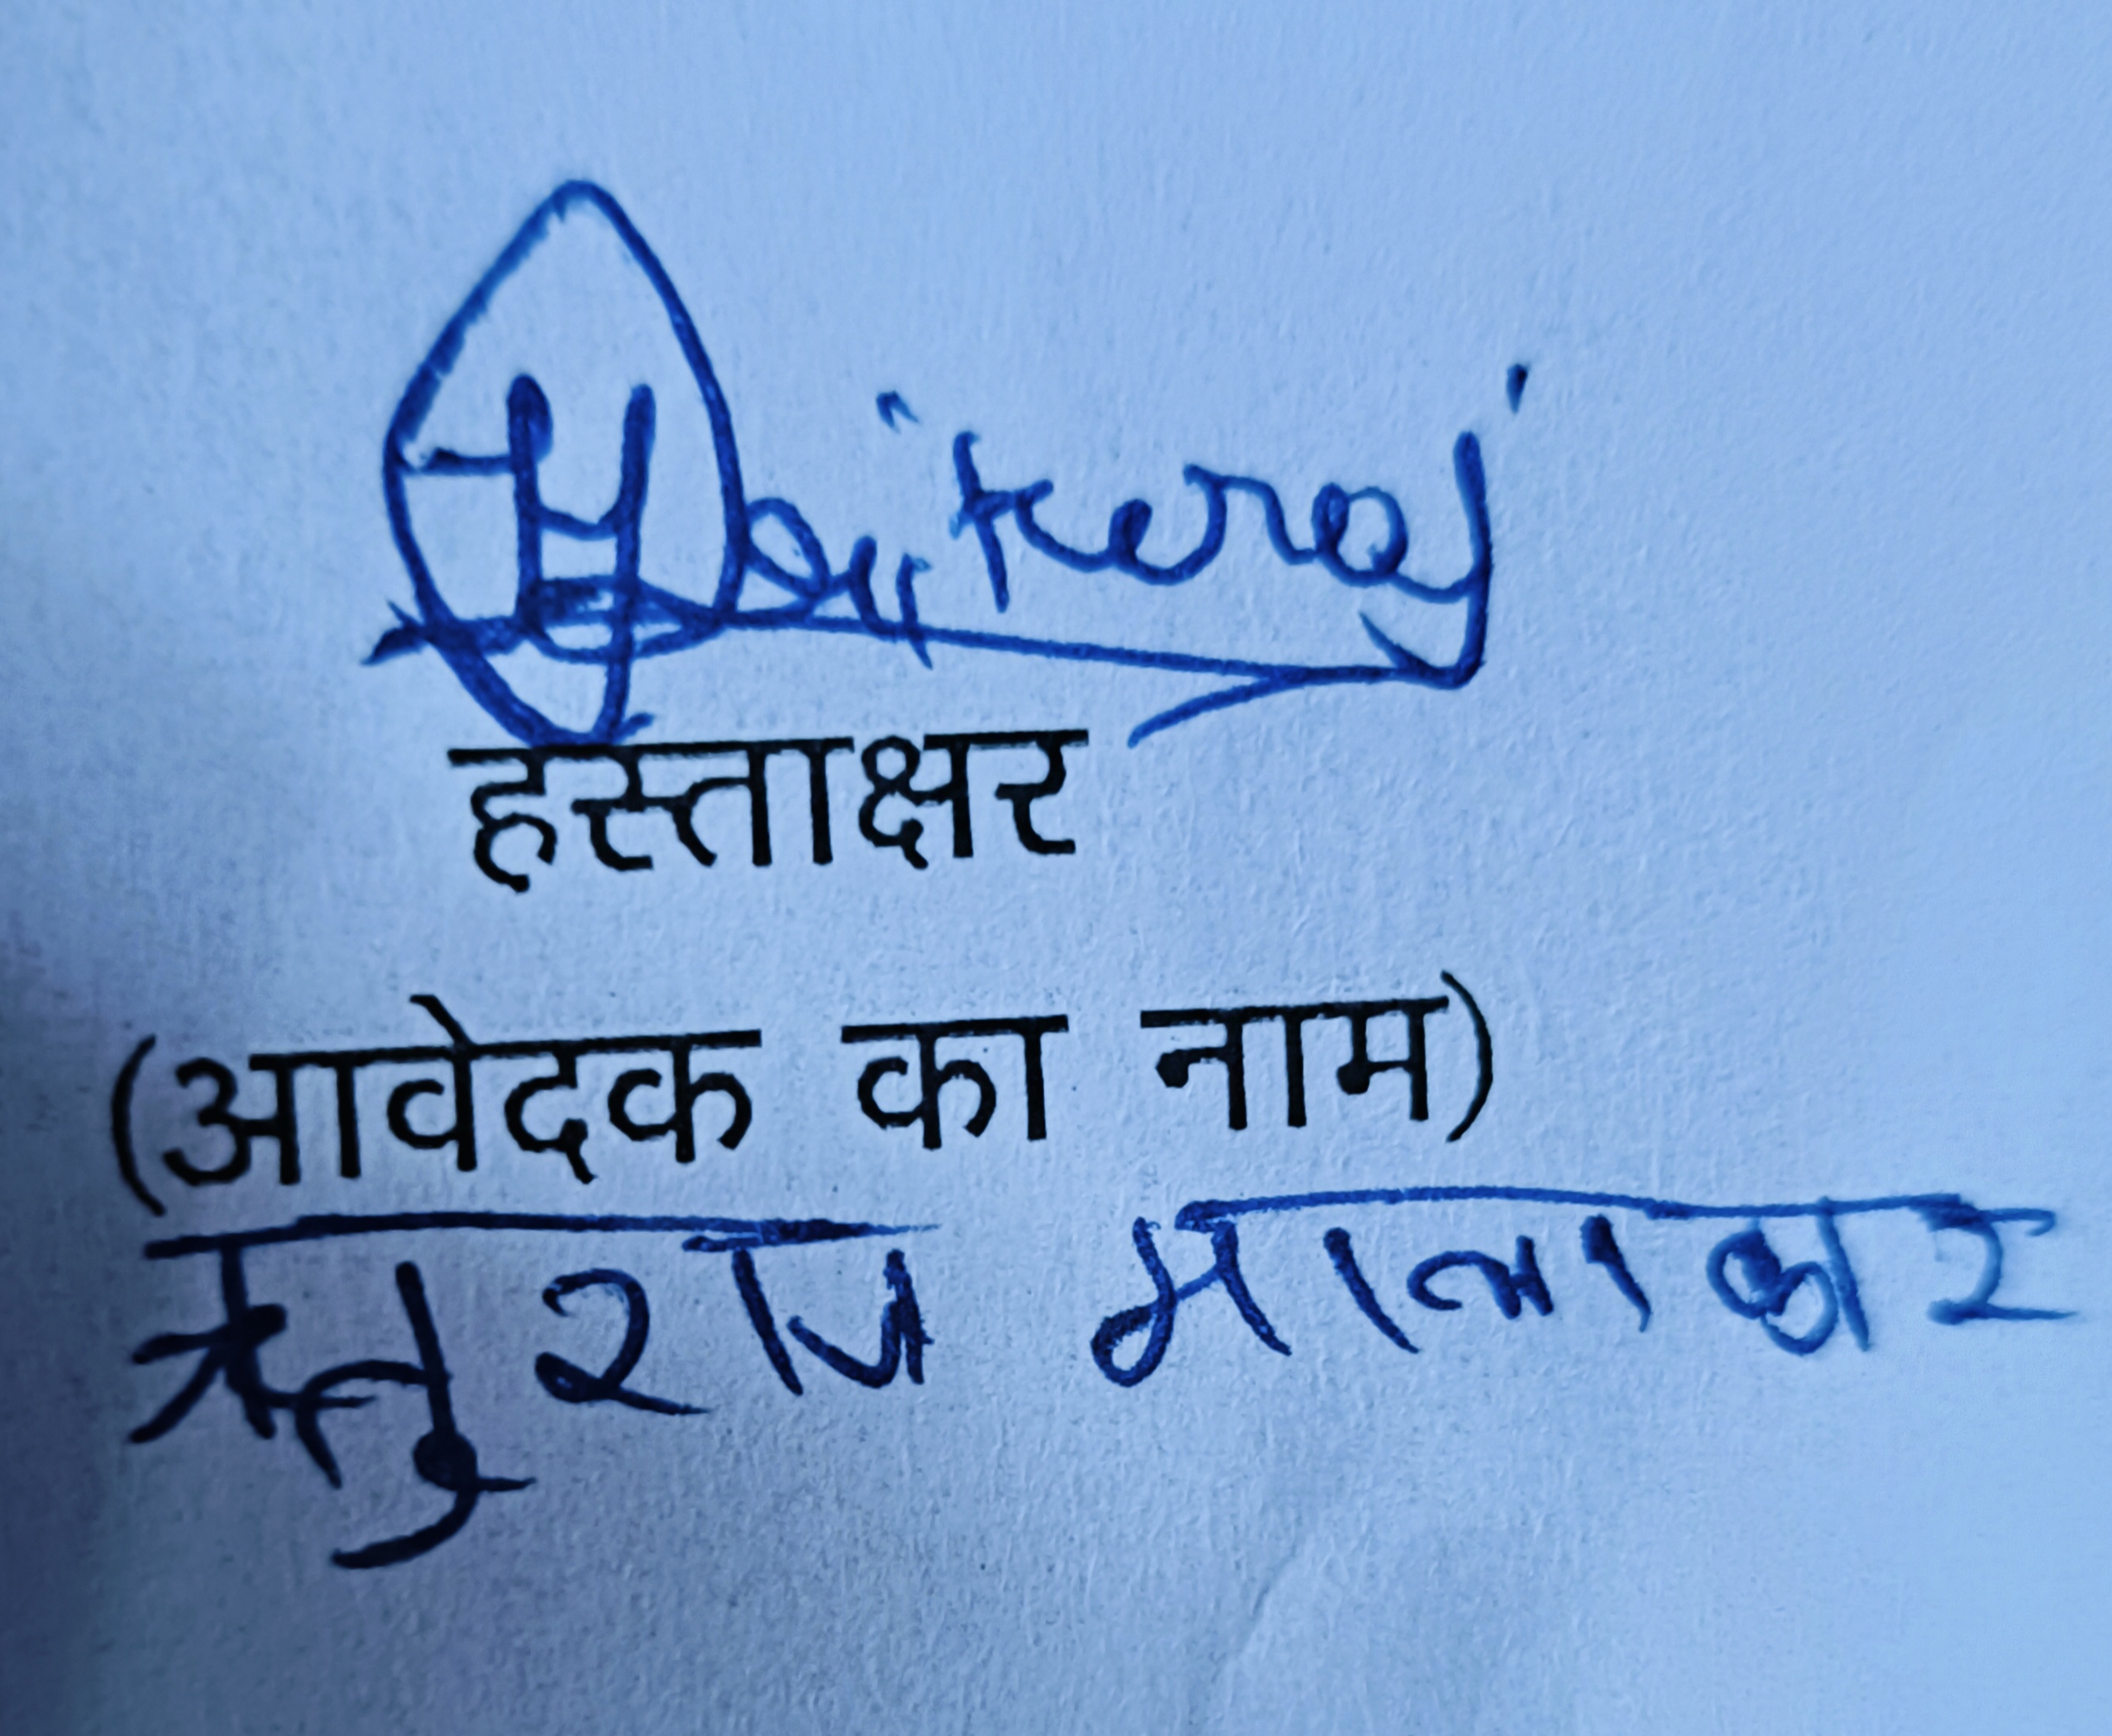 हस्ताक्षर
(आवेदक का नाम)
ऋतुराज मालाकार